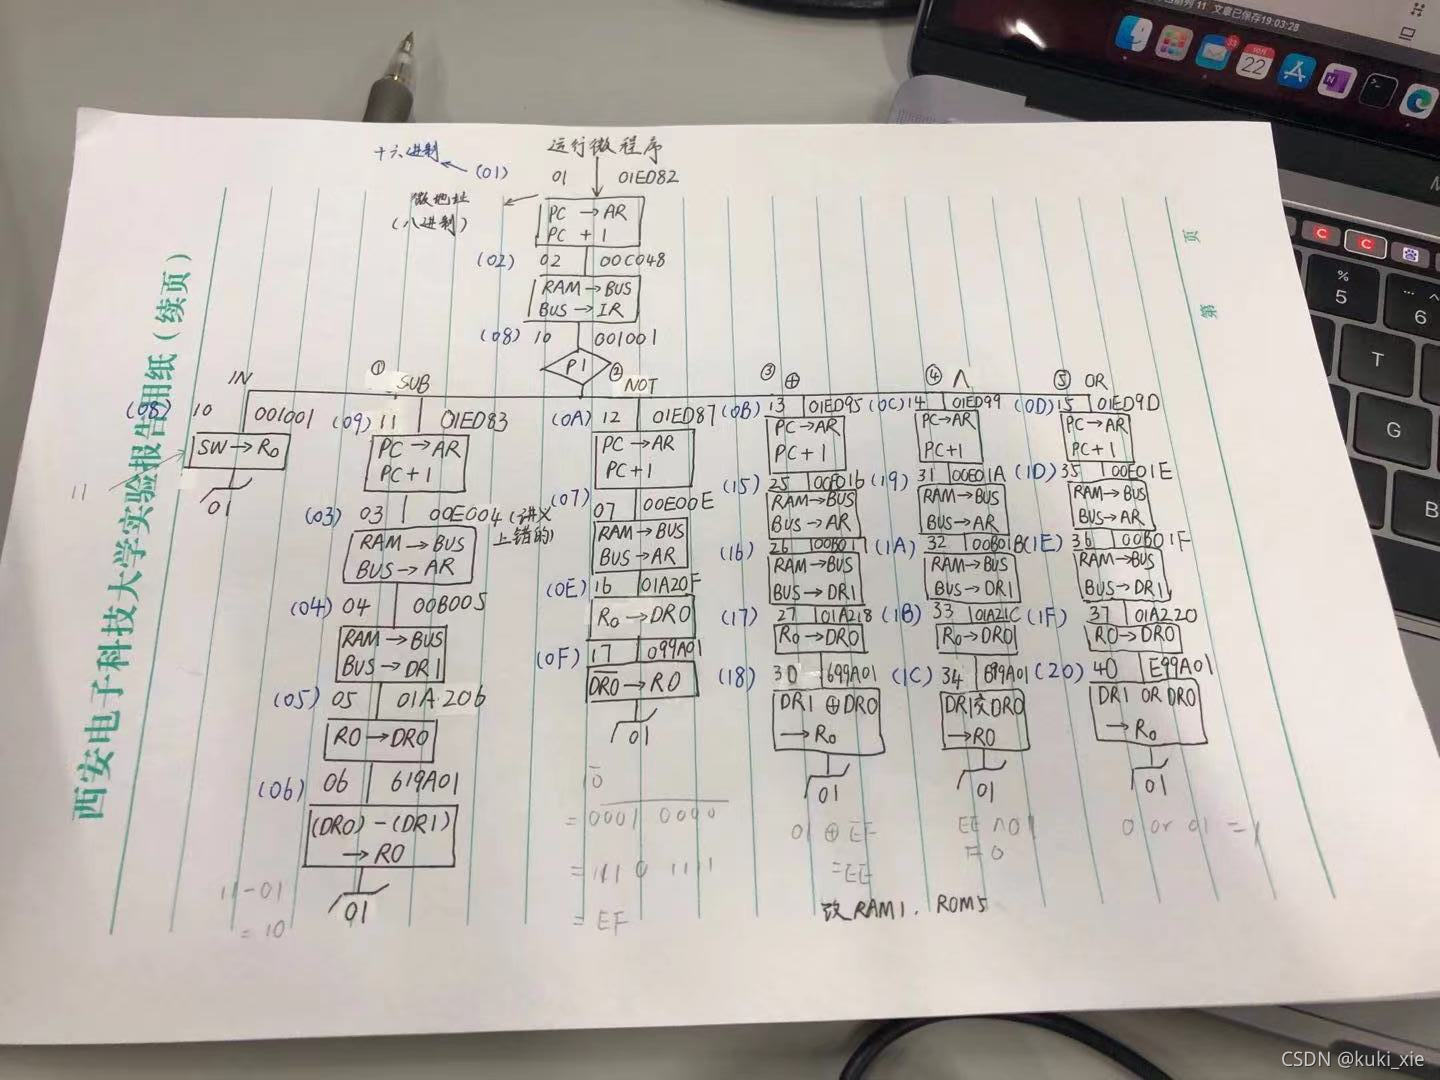 文章已保存19:03:28
22
%
5
^
6
T
G
B
C
C
西安电子科技大学实验报告用纸(续页)
第 页
十六进制
(01)
运行微程序
01 01ED82
微地址
(八进制)
PC → AR
PC + 1
(02) 02 00C048
RAM → BUS
BUS → IR
(08) 10 001001
P1
IN
(08) 10 001001
SW → R0
01
11
① SUB
(09) 11 01ED83
PC → AR
PC + 1
(03) 03 00E004 (讲义
上错的)
RAM → BUS
BUS → AR
(04) 04 00B005
RAM → BUS
BUS → DR1
(05) 05 01A206
R0 → DR0
(06) 06 619A01
(DR0) - (DR1)
→ R0
01
11-01
= 10
② NOT
(0A) 12 01ED87
PC → AR
PC + 1
(07) 07 00E00E
RAM → BUS
BUS → AR
(0E) 16 01A20F
R0 → DR0
(0F) 17 099A01
D̅R̅0̅ → R0
01
10
= 0001 0000
= 1110 1111
= EF
③ ⊕
(0B) 13 01ED95
PC → AR
PC + 1
(15) 25 00E016
RAM → BUS
BUS → AR
(16) 26 00B017
RAM → BUS
BUS → DR1
(17) 27 01A218
R0 → DR0
(18) 30 699A01
DR1 ⊕ DR0
→ R0
01
01 ⊕ EF
= EE
④ ∧
(0C) 14 01ED99
PC → AR
PC + 1
(19) 31 00E01A
RAM → BUS
BUS → AR
(1A) 32 00B01B
RAM → BUS
BUS → DR1
(1B) 33 01A21C
R0 → DR0
(1C) 34
DR1 交 DR0
→ R0
01
EE ∧ 01
= 0
⑤ OR
(0D) 15 01ED9D
PC → AR
PC + 1
(1D) 35 00E01E
RAM → BUS
BUS → AR
(1E) 36 00B01F
RAM → BUS
BUS → DR1
(1F) 37 01A220
R0 → DR0
(20) 40 E99A01
DR1 OR DR0
→ R0
01
0 or 01 = 1
改RAM1. ROM5
CSDN @kuki_xie